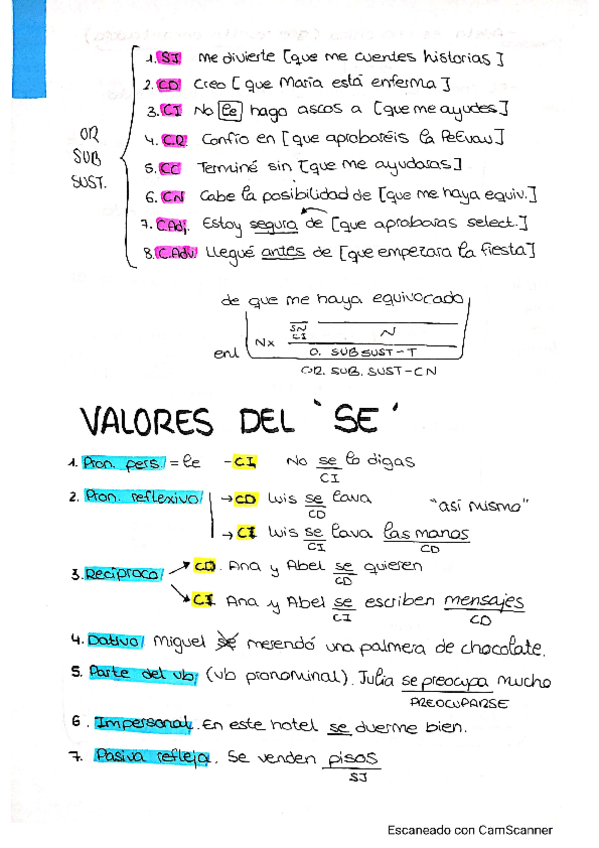 1. SJ Me divierte [que me cuentes historias]
2. CD Creo [que María está enferma]
3. CI No le hago ascos a [que me ayudes]
4. C.R Confío en [que aprobaréis la PeEvau]
5. CC Terminé sin [que me ayudaras]
6. CN Cabe la posibilidad de [que me haya equiv.]
7. C.Adj. Estoy segura de [que aprobaras select.]
8. C.Adv. Llegué antes de [que empezara la fiesta]
OR
SUB
SUST.
de que me haya equivocado
SN
CI
N
Nx
enl
O. SUB SUST-T
OR. SUB. SUST-CN
VALORES DEL 'SE'
1. Pron. pers. = le - CI No se lo digas
CI
2. Pron. reflexivo → CD Luis se lava "a sí mismo"
CD
→ CI Luis se lava las manos
CI CD
3. Recíproco CD. Ana y Abel se quieren
CD
CI Ana y Abel se escriben mensajes
CI CD
4. Dativo Miguel se merendó una palmera de chocolate.
5. Parte del vb. (vb pronominal). Julia se preocupa mucho
PREOCUPARSE
6. Impersonal. En este hotel se duerme bien.
7. Pasiva refleja. Se venden pisos
SJ
Escaneado con CamScanner